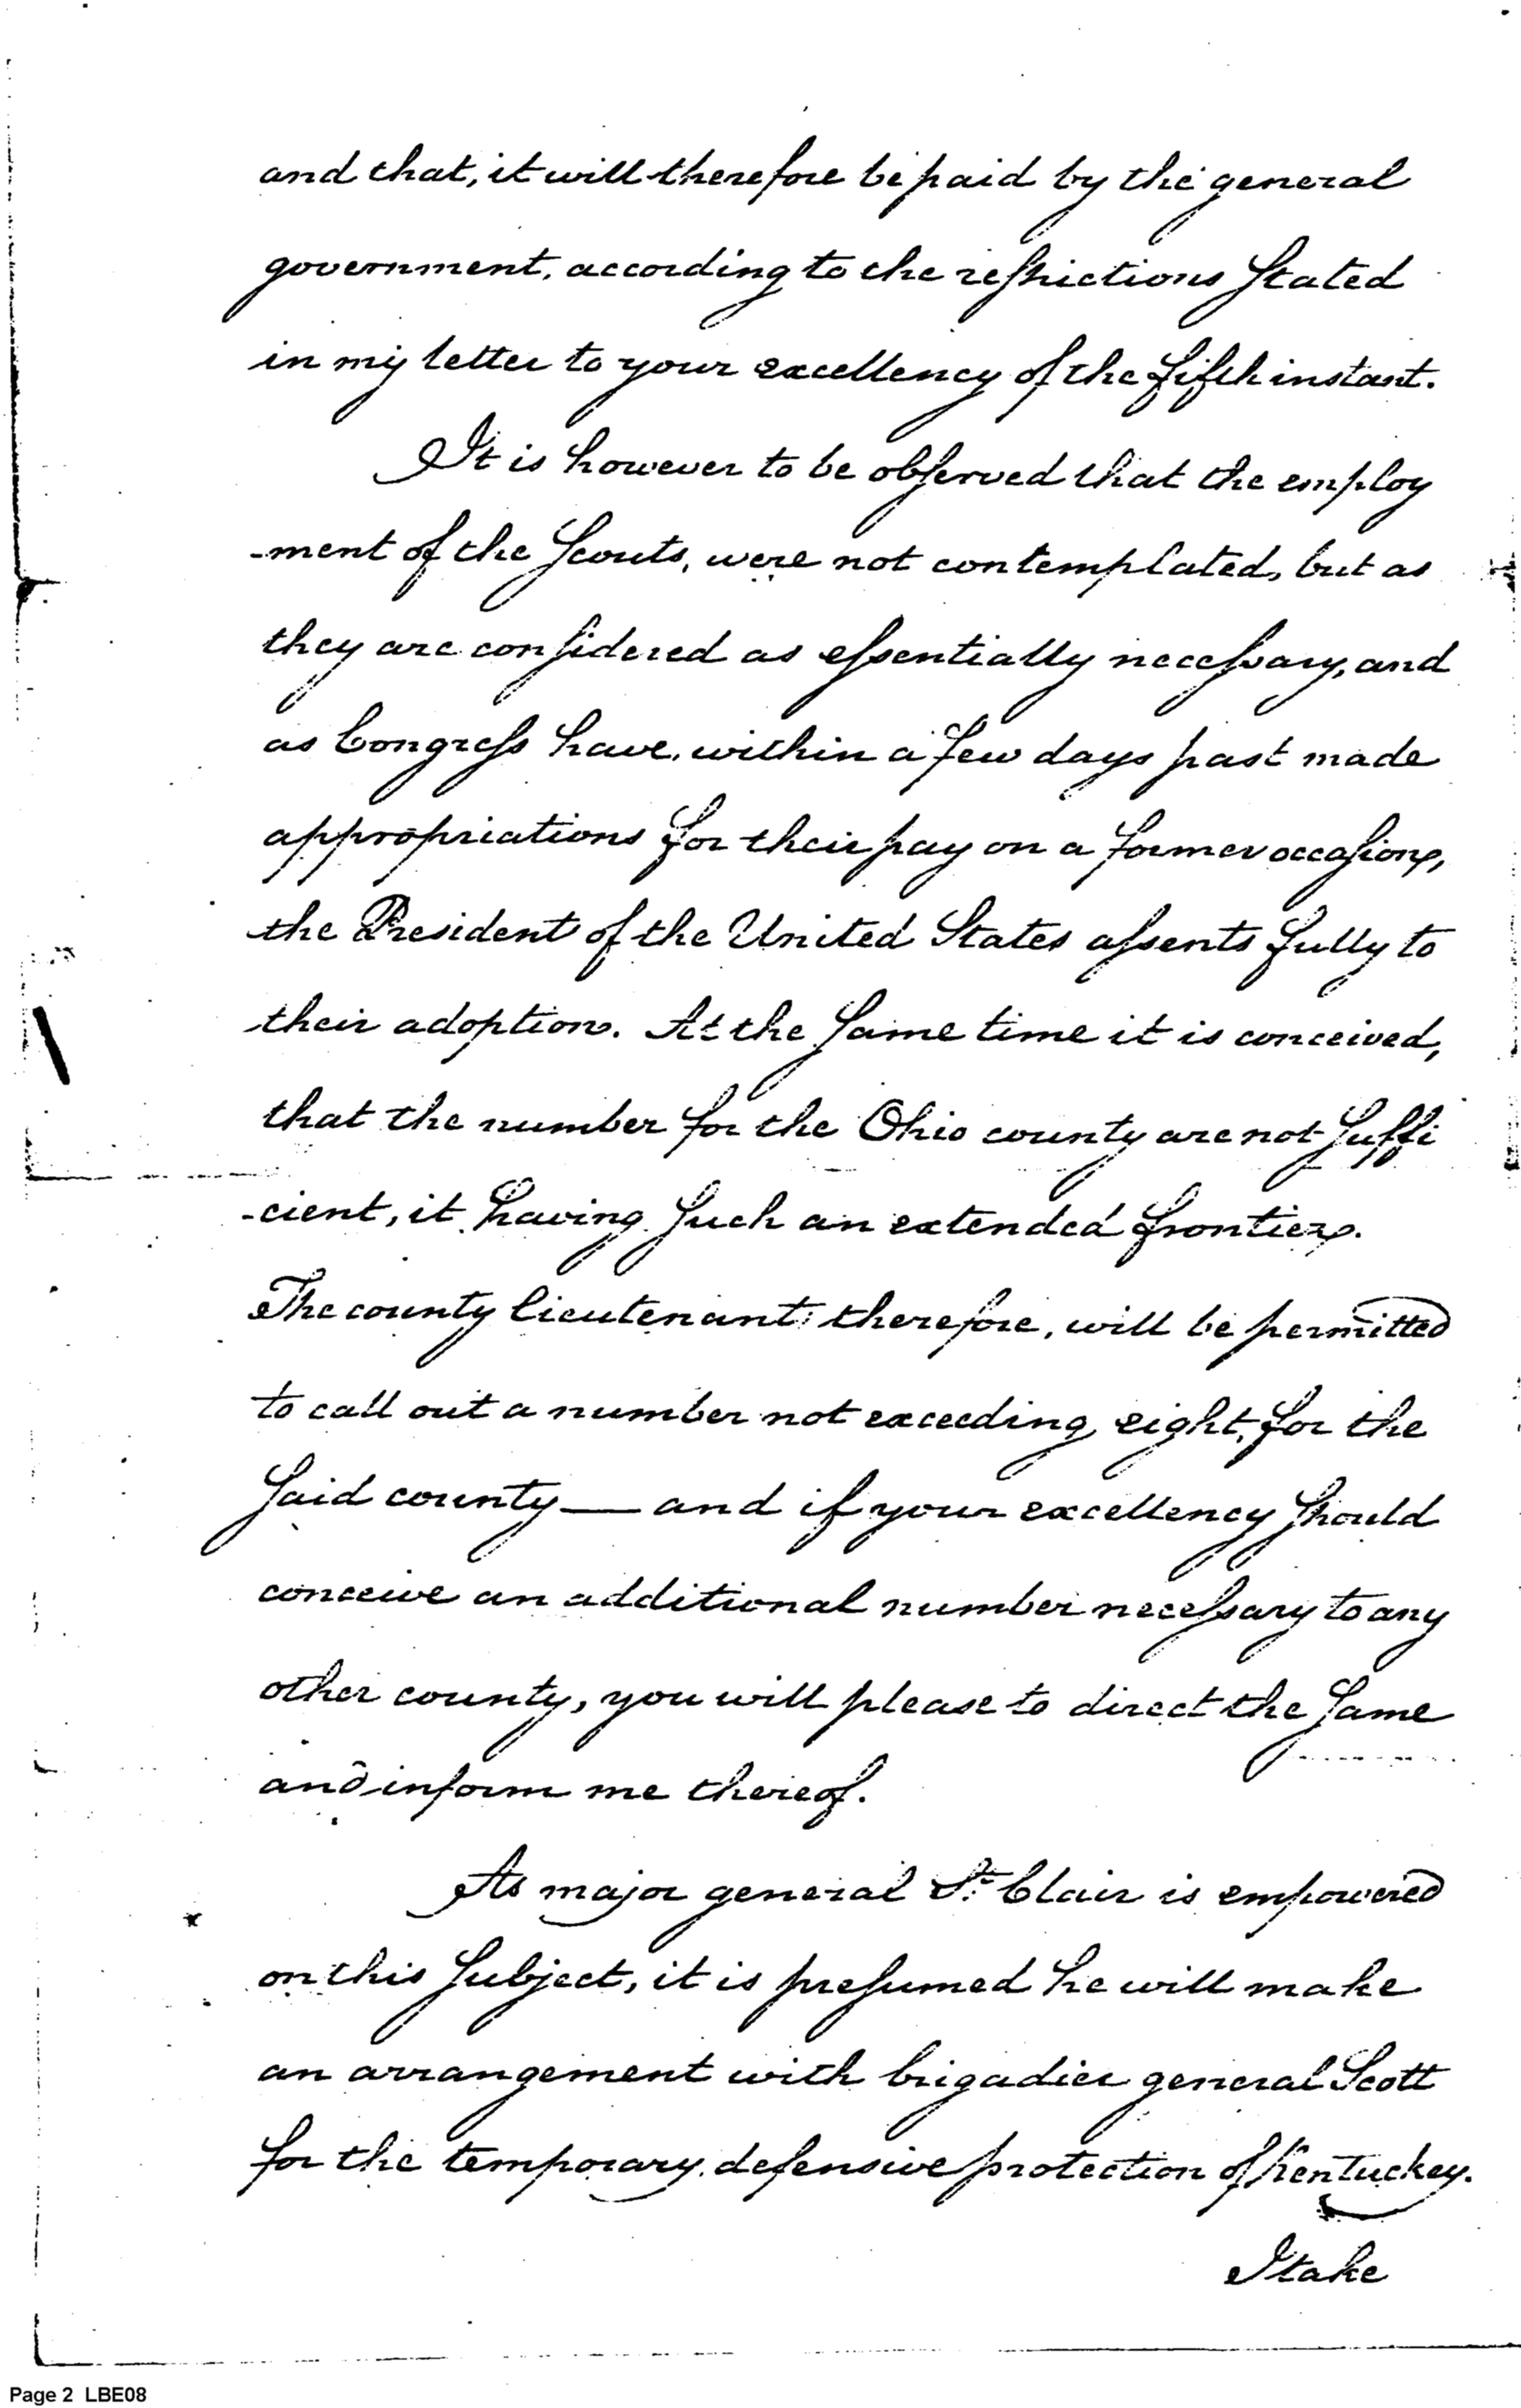 and that, it will therefore be paid by the general
government, according to the restrictions Stated
in my letter to your excellency of the fifth instant.
It is however to be observed that the employ
-ment of the Scouts, were not contemplated, but as
they are considered as essentially necessary, and
as Congress have, within a few days past made
appropriations for their pay on a former occasion,
the President of the United States assents fully to
their adoption. At the Same time it is conceived,
that the number for the Ohio county are not Suffi
-cient, it having Such an extended frontier.
The county lieutenant therefore, will be permitted
to call out a number not exceeding eight, for the
Said county — and if your excellency Should
conceive an additional number necessary to any
other county, you will please to direct the Same
and inform me thereof.
As major general St. Clair is empowered
on this Subject, it is presumed he will make
an arrangement with brigadier general Scott
for the temporary defensive protection of Kentuckey.
I take
Page 2 LBE08